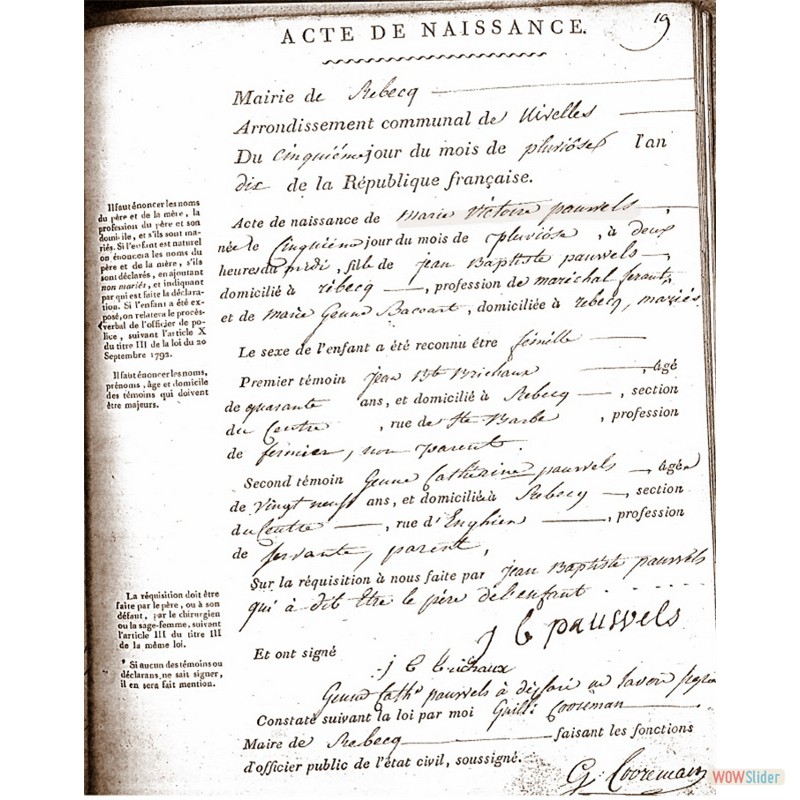 19
ACTE DE NAISSANCE.
Mairie de Rebecq
Arrondissement communal de Nivelles
Du cinquième jour du mois de pluviôse l'an
dix de la République française.
Il faut énoncer les noms
du père et de la mère, la
profession du père et son
domicile, et s'ils sont ma-
riés. Si l'enfant est naturel
on énoncera les noms du
père et de la mère, s'ils
sont déclarés, en ajoutant
non mariés, et indiquant
par qui est faite la déclara-
tion. Si l'enfant a été ex-
posé, on relatera le procès-
verbal de l'officier de po-
lice, suivant l'article X
du titre III de la loi du 20
Septembre 1792.
Il faut énoncer les noms,
prénoms, âge et domicile
des témoins qui doivent
être majeurs.
Acte de naissance de Marie Victoire pauwels,
née le Cinquième jour du mois de pluviôse, à deux
heures du midi, fille de jean Baptiste pauwels,
domicilié à rebecq, profession de maréchal ferant,
et de marie Baccart, domiciliée à rebecq, mariés
Le sexe de l'enfant a été reconnu être fémelle
Premier témoin jean Bte Brichaux, âgé
de quarante ans, et domicilié à Rebecq, section
du Centre, rue de Ste Barbe, profession
de fermier, non parent.
Second témoin Catherine pauwels, âgée
de vingt neuf ans, et domicilié à Rebecq, section
du Centre, rue d'Enghien, profession
de servante, parent,
La réquisition doit être
faite par le père, ou à son
défaut, par le chirurgien
ou la sage-femme, suivant
l'article III du titre III
de la même loi.
* Si aucun des témoins ou
déclarans ne sait signer,
il en sera fait mention.
Sur la réquisition à nous faite par jean Baptiste pauwels
qui à dit être le père de l'enfant
j b pauwels
Et ont signé
j b brichaux
Cathe pauwels à déclaré ne savoir
Constaté suivant la loi par moi Guill: Cooreman
Maire de Rebecq faisant les fonctions
d'officier public de l'état civil, soussigné.
G. Cooreman
WOWSlider